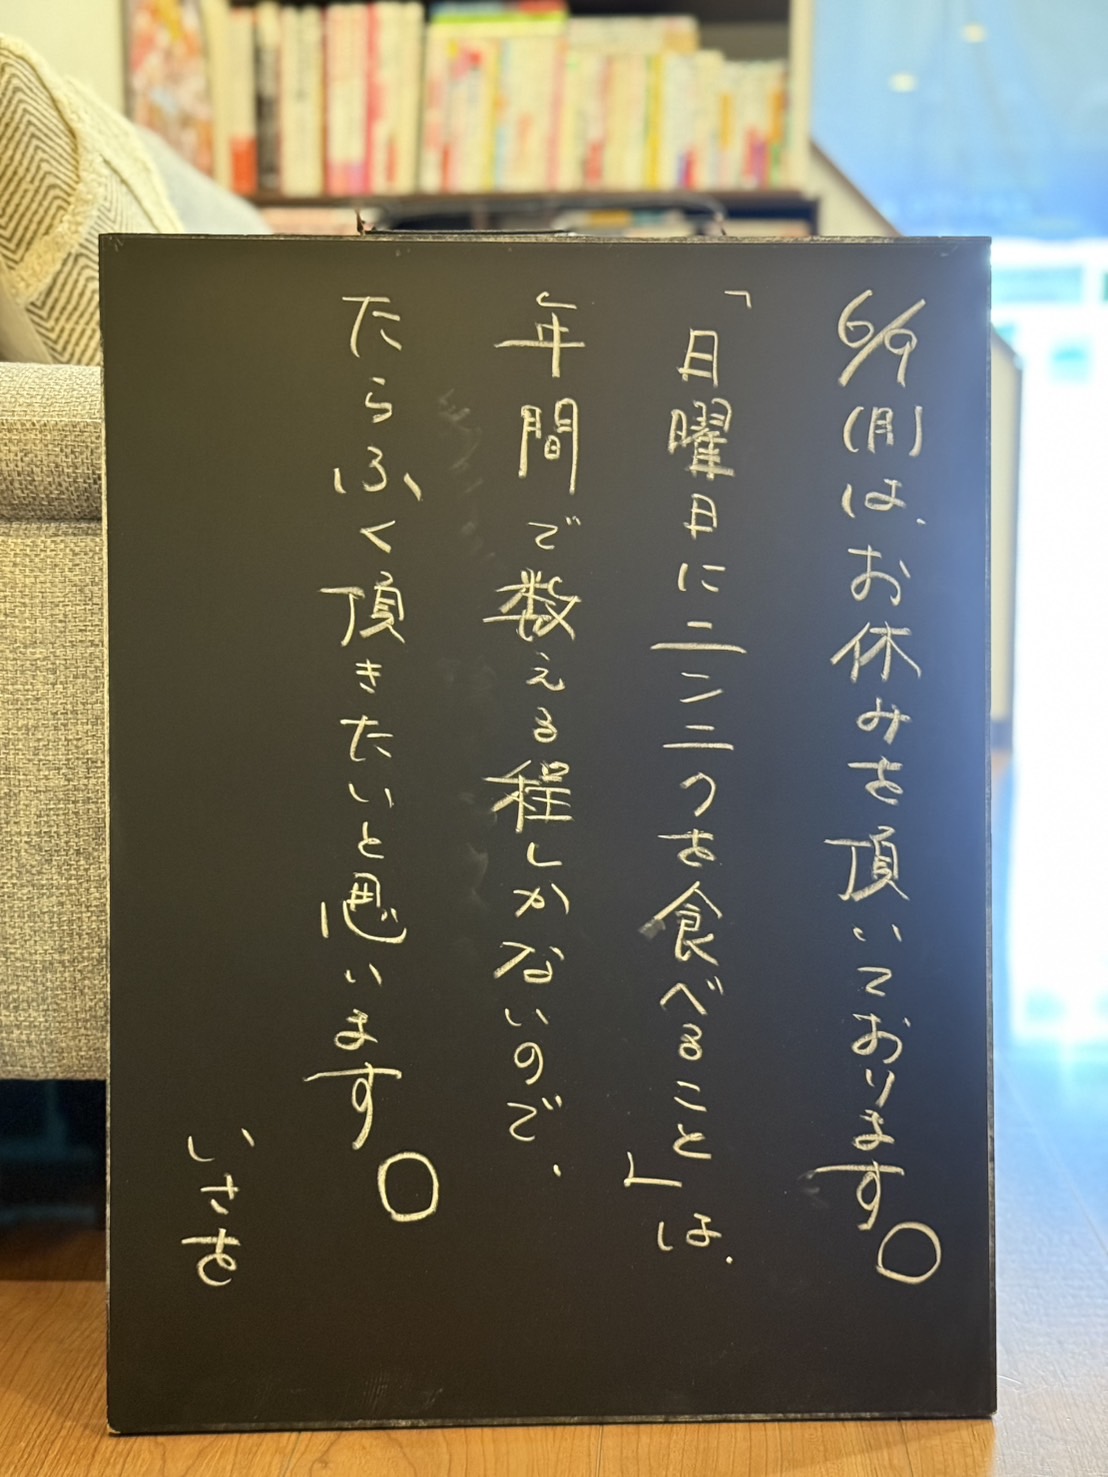 6/9(月)は、お休みを頂いております。
「日曜日にニンニクを食べること」は、
年間で数える程しかないので、
たらふく頂きたいと思います。
いさを